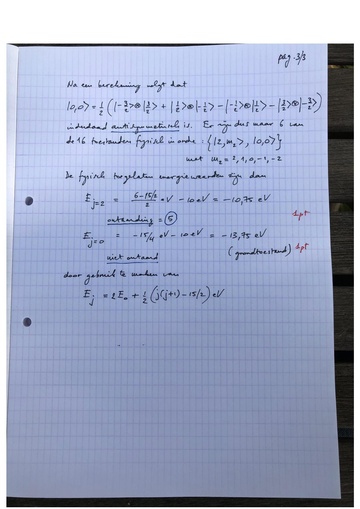 pag. 3/3
Na een berekening volgt dat
|0,0⟩ = 1/2 ( |-3/2⟩⊗|3/2⟩ + |1/2⟩⊗|-1/2⟩ - |-1/2⟩⊗|1/2⟩ - |3/2⟩⊗|-3/2⟩ )
inderdaad antisymmetrisch is. Er zijn dus maar 6 van
de 16 toestanden fysisch in orde : { |2,m₂⟩, |0,0⟩ }
met m₂ = 2, 1, 0, -1, -2
De fysisch toegelaten energiewaarden zijn dan
E_{j=2} = (6-15/2)/2 eV - 10 eV = -10,75 eV
ontaarding = 5 1pt
E_{j=0} = -15/4 eV - 10 eV = -13,75 eV
(grondtoestand) 1pt
niet ontaard
door gebruik te maken van
E_j = 2E₀ + 1/2 (j(j+1) - 15/2) eV